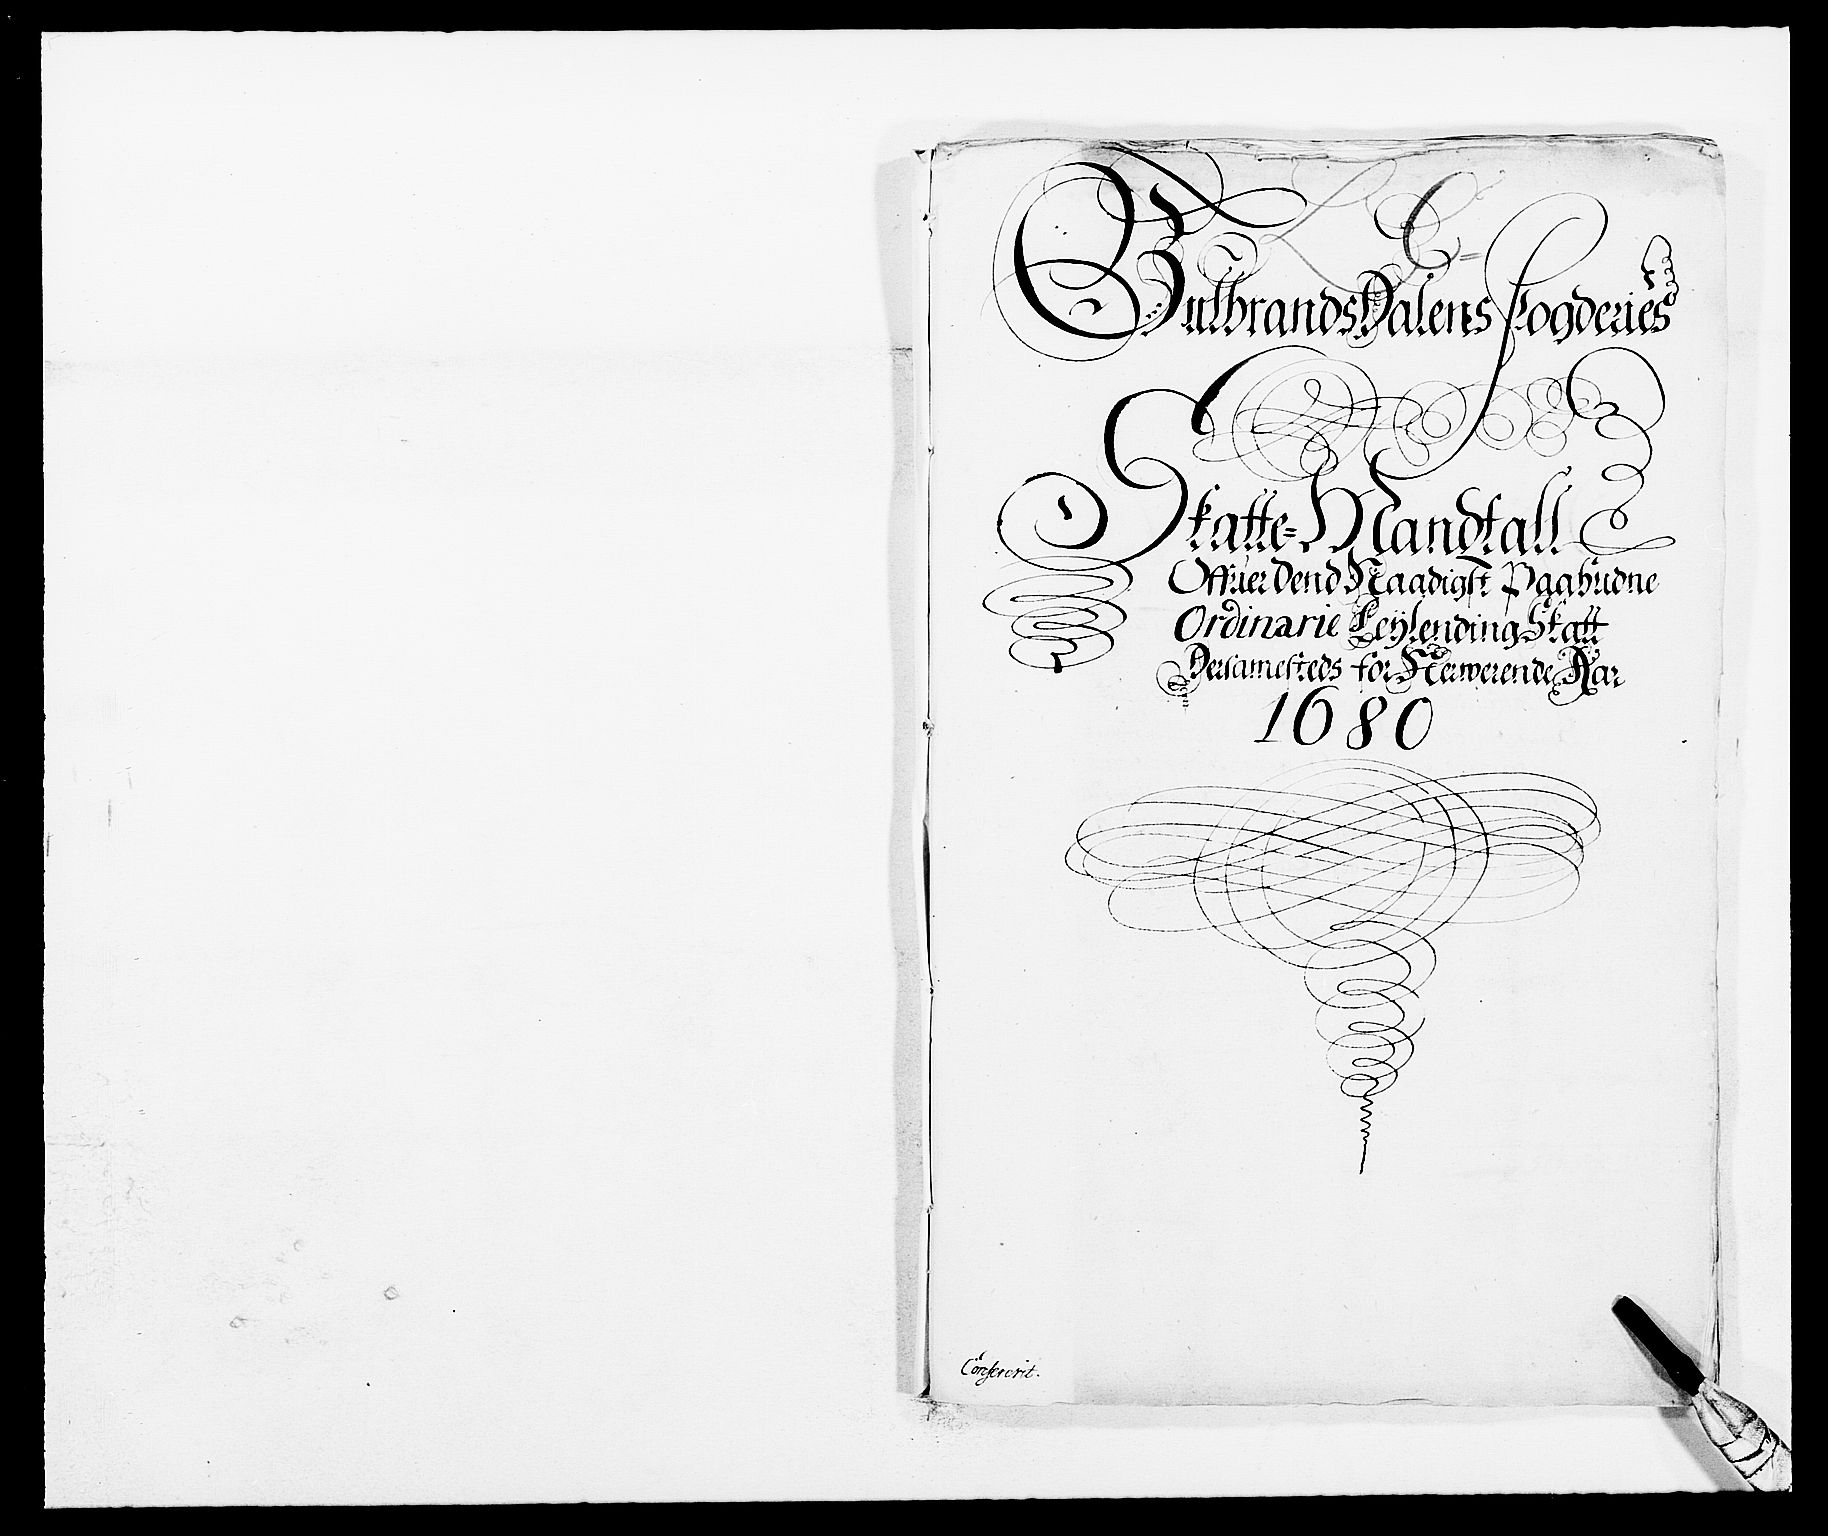 L C=
Gulbrands Dalens Fogderies
Skatte= Mandtall
Offuer Dend Naadigst Paabudne
Ordinarie Leÿlending Skatt
Dersamesteds for Nerwerende Aar
1680
Confererit.